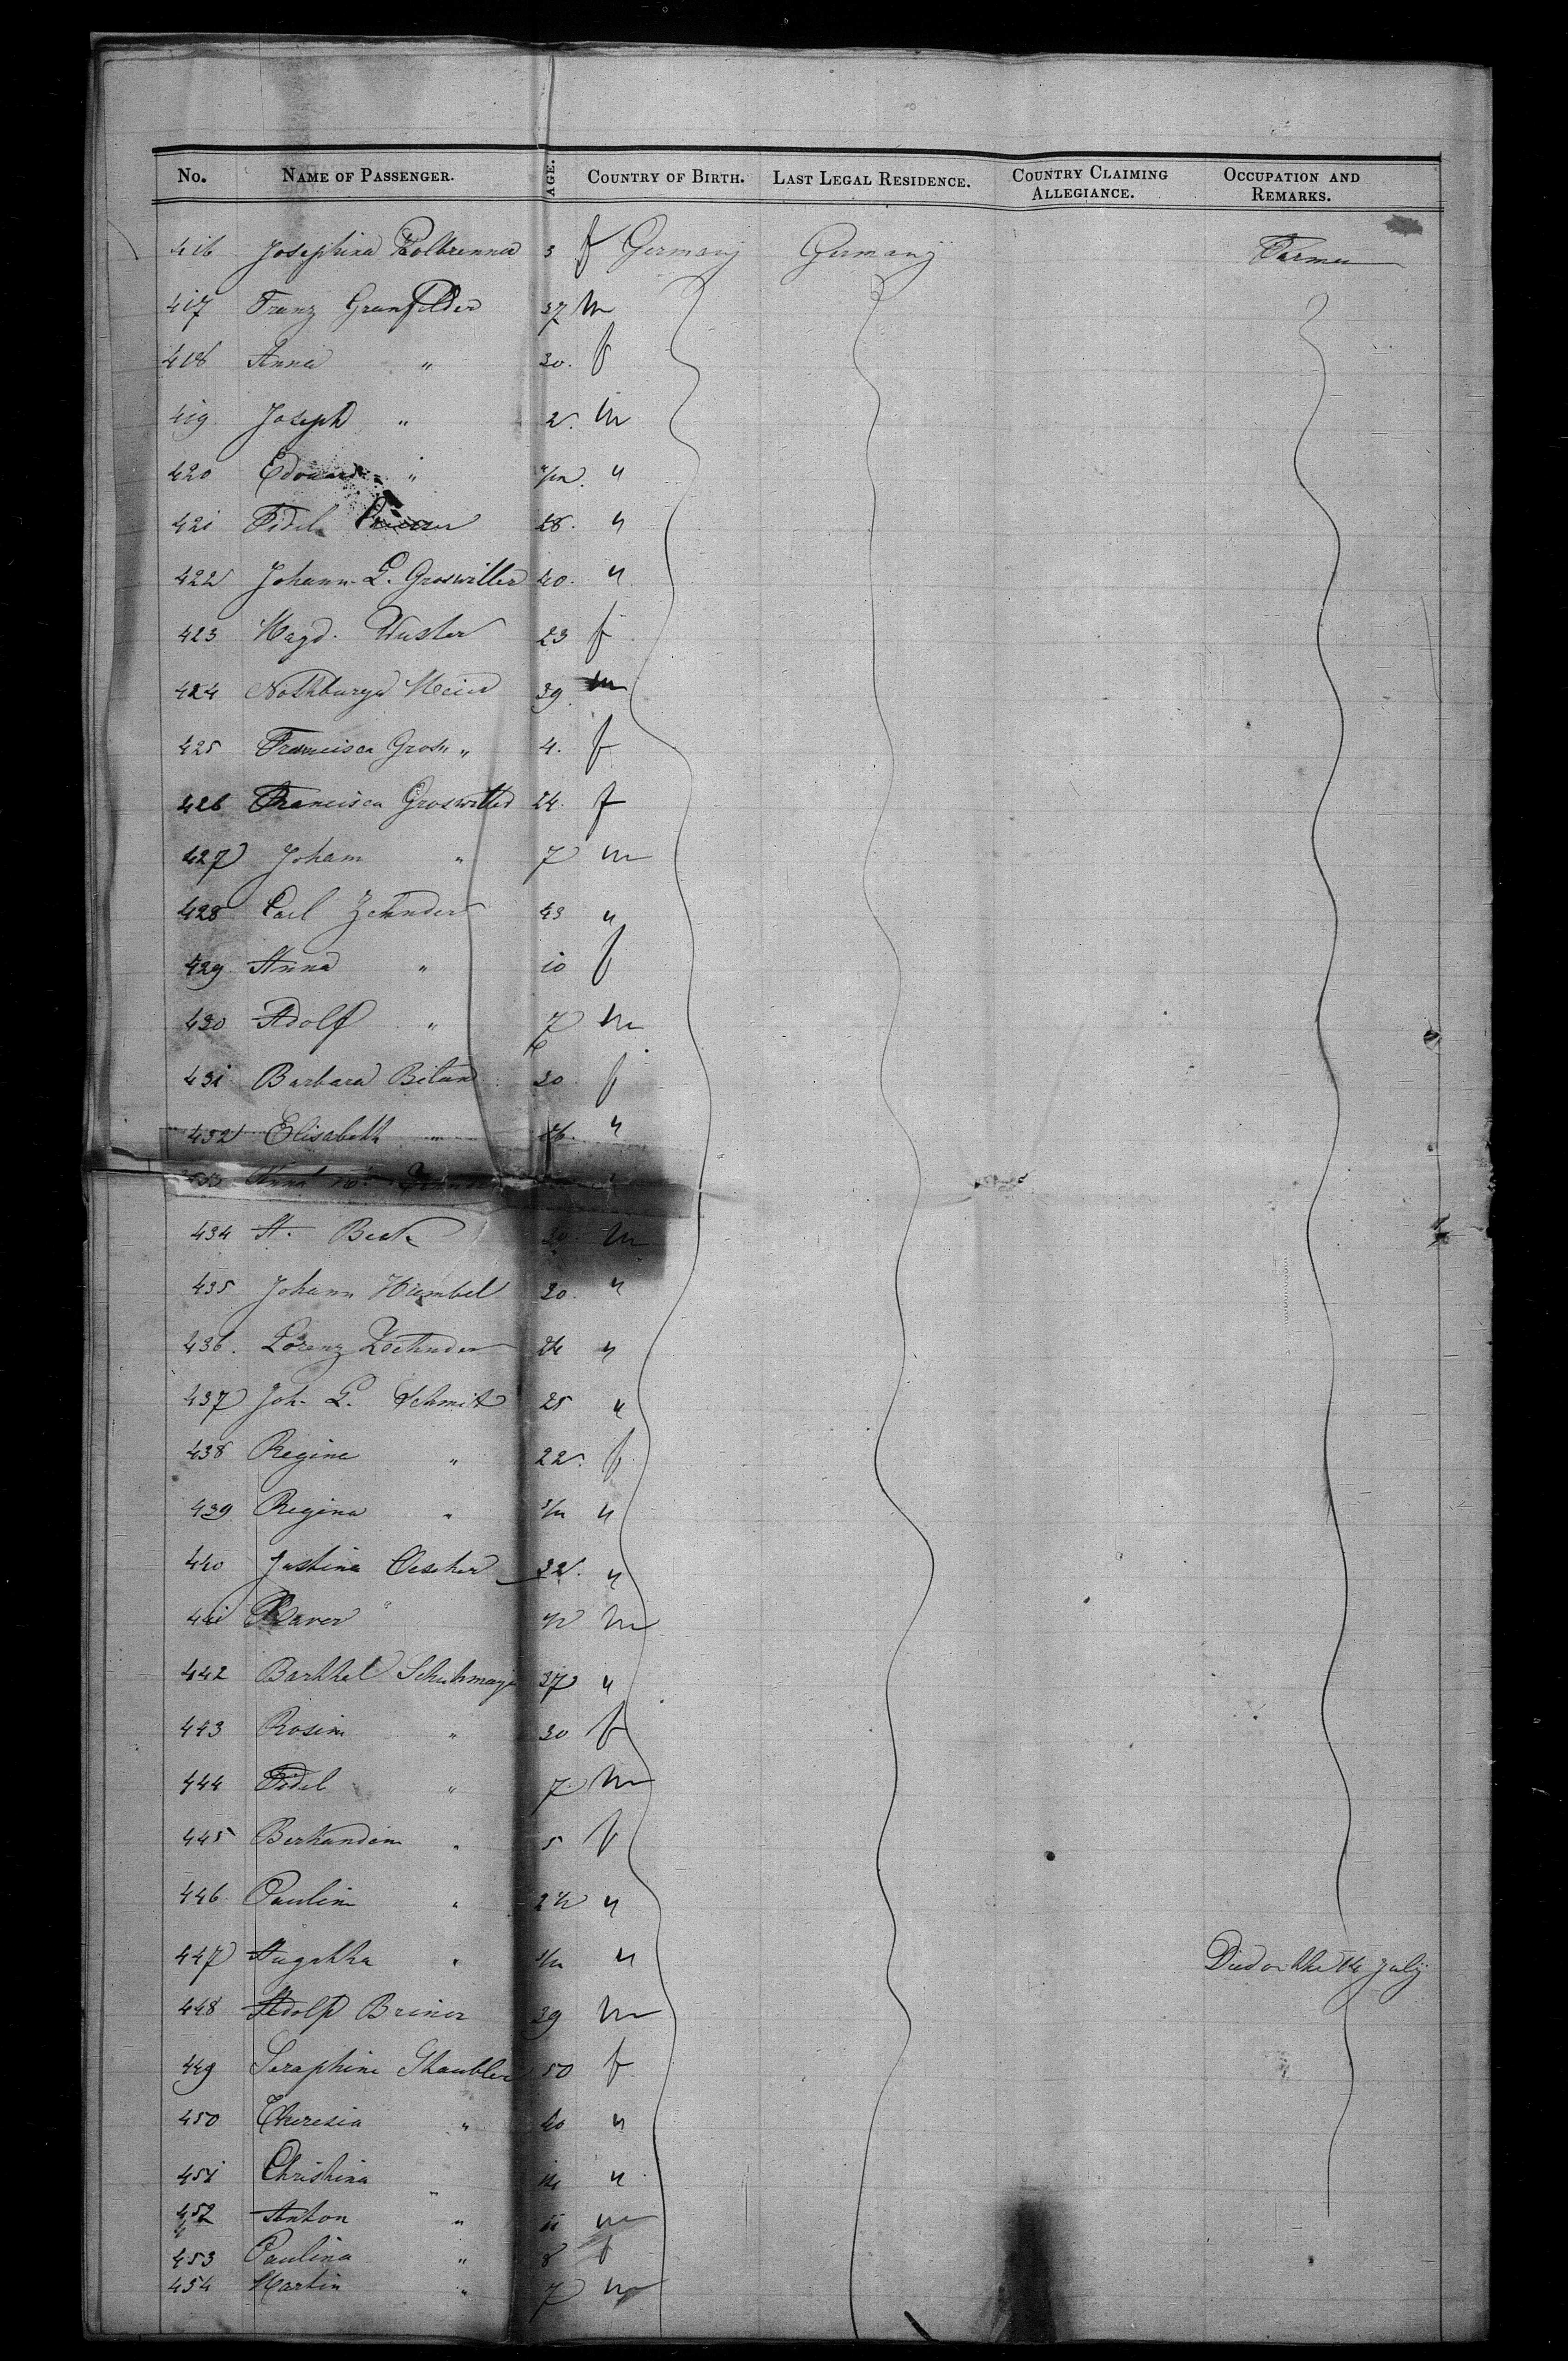 No. NAME OF PASSENGER. AGE. COUNTRY OF BIRTH. LAST LEGAL RESIDENCE. COUNTRY CLAIMING ALLEGIANCE. OCCUPATION AND REMARKS.
416 Josephina 3 f Germany Germany Farmer
417 Franz Grunfelder 37 m
418 Anna " 30. f
419 Joseph " 2. m
420 Edouard " "
421 Fidel 28. "
422 Johann L. Groswiller 40. "
423 Magd. Wuster 23 f
424 Nothburga Meier 39. m
425 Francisca Gros " 4. f
426 Francisca Groswiller 24. f
427 Joham " 7 m
428 Carl Zehnder 43 "
429 Anna " 10 f
430 Adolf " 7 m
431 Barbara 30 f
432 Elisabeth " "
433 Anna "
434 A. Beck 30. m
435 Johann Humbel 20. "
436. Lorenz Zeehnder 24 "
437 Joh. L. Schmit 25 "
438 Regine " 22. f
439 Regina " "
440 Justina Oescher 32. "
441 Xaver " m
442 Barthel Schuhmayr 37 "
443 Rosine " 30 f
444 Fidel " 7. m
445 " 5 f
446 Pauline " 2 1/2 "
447 " " Died on the 14 July
448 Adolf Briner 39 m
449 Seraphine 50 f
450 Theresia " 40 "
451 Christina " 14 "
452 Anton " 11 m
453 Paulina " 8 f
454 Martin " 7 m